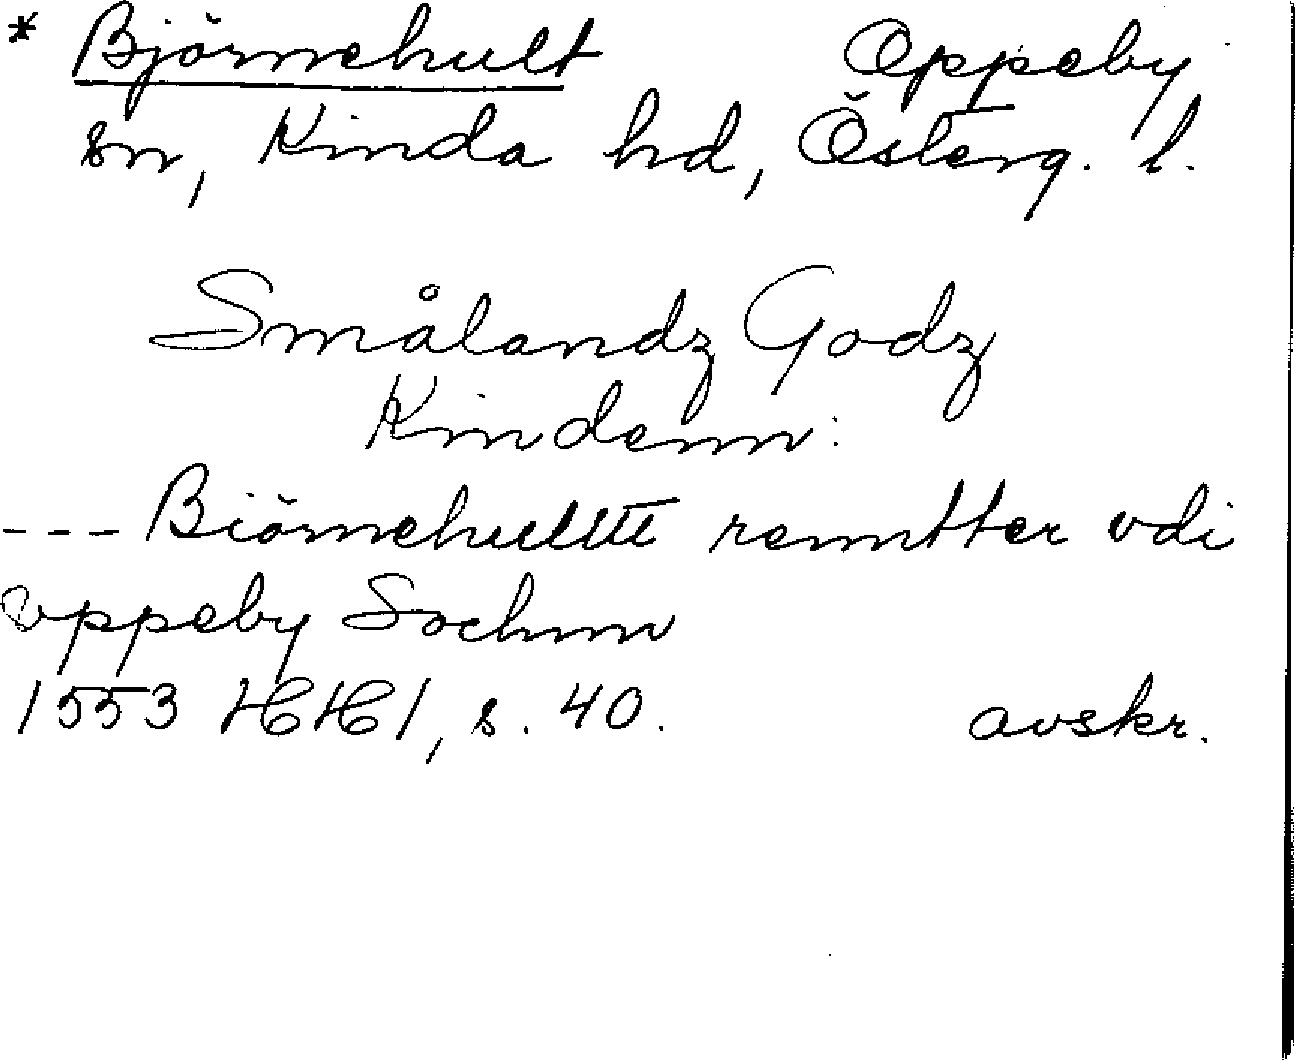 * Björnehult Oppeby
sn, Kinda hd, Österg. l.
Smålandz Godz
Kindenn:
--- Biörnehulttt renntter vdi
oppeby Sochnn
1553 HH 1, s. 40. avskr.